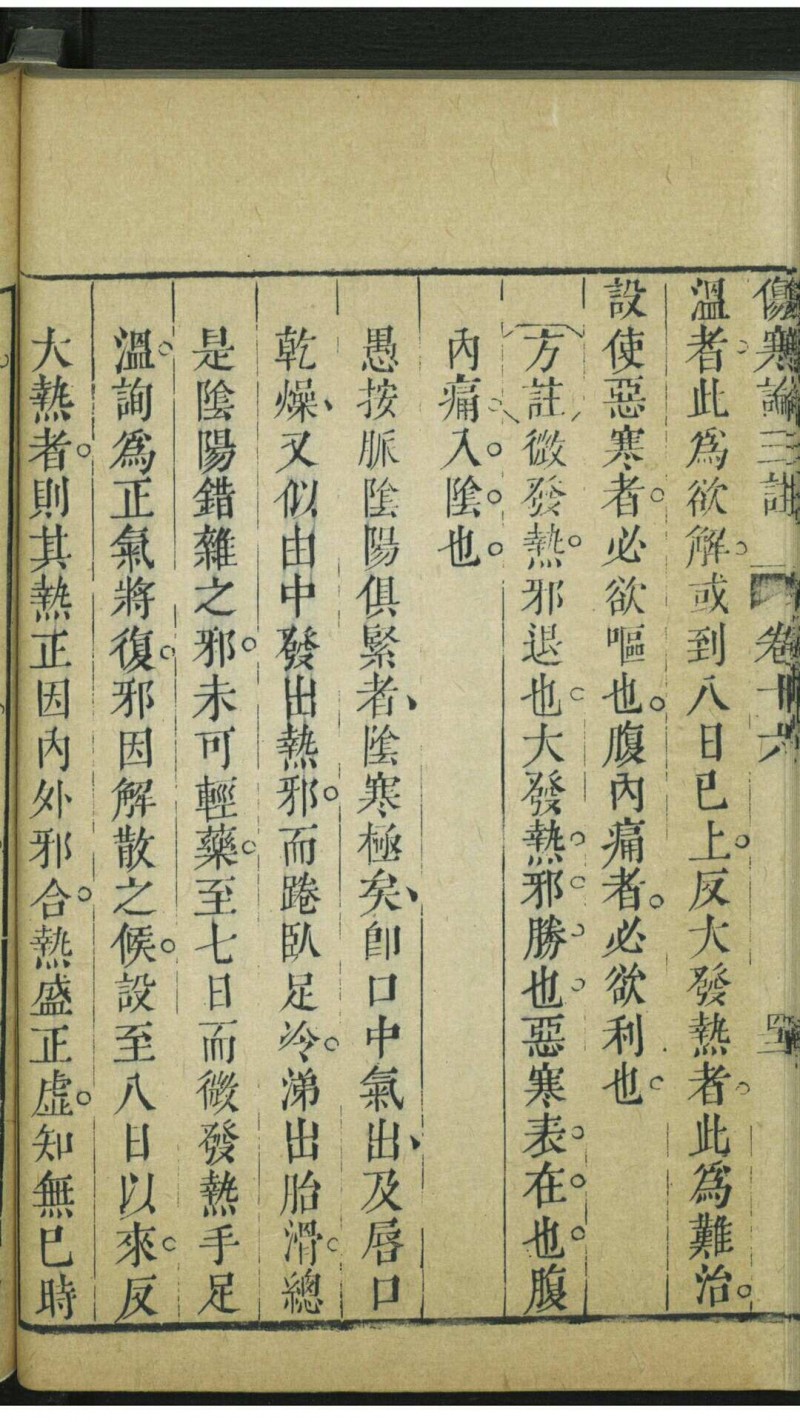 傷寒論三註 卷十六
溫者此爲欲解。或到八日已上。反大發熱者。此爲難治。
設使惡寒者。必欲嘔也。腹內痛者。必欲利也。
方註微發熱。邪退也。大發熱。邪勝也。惡寒表。在。也。腹
內痛。入。陰。也。
愚按脈陰陽俱緊者、陰寒極矣、卽口中氣出、及唇口
乾燥、又似由中發出熱邪。而踡臥足冷。涕出胎滑。總
是陰陽錯雜之邪。未可輕藥。至七日而微發熱手足
溫。詢爲正氣將復。邪因解散之候。設至八日以來。反
大熱者。則其熱正因內外邪合。熱盛正虛。知無已時